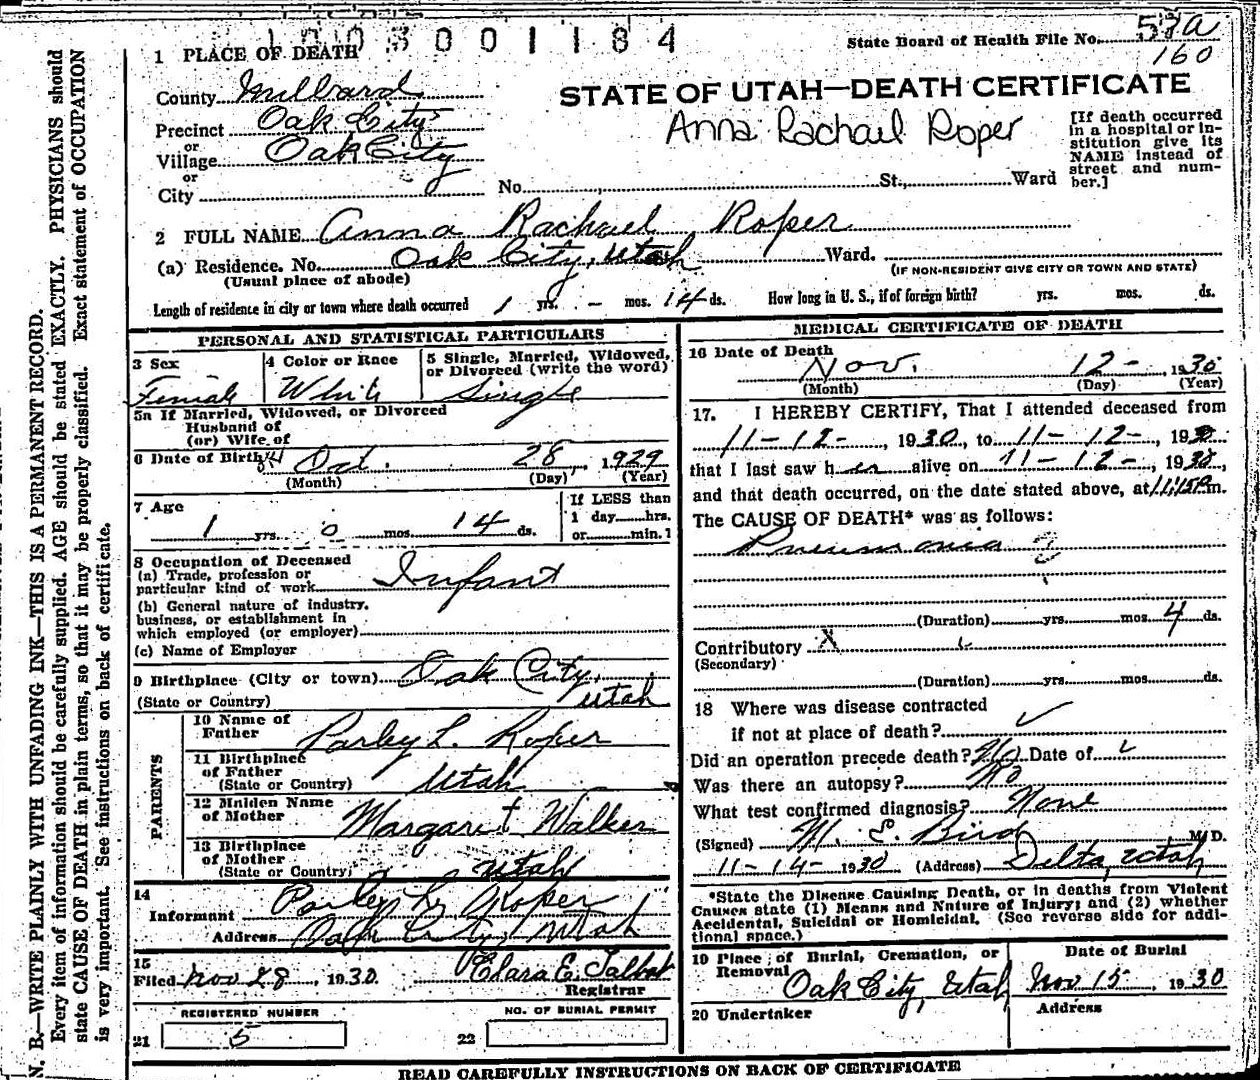 1003001184
State Board of Health File No. 58a
160
1 PLACE OF DEATH
STATE OF UTAH—DEATH CERTIFICATE
Anna Rachail Roper
County Millard
Precinct Oak City
or
Village Oak City
or
City
No. St., Ward
[If death occurred
in a hospital or in-
stitution give its
NAME instead of
street and num-
ber.]
2 FULL NAME Anna Rachael Roper
(a) Residence. No. Oak City, Utah Ward.
(Usual place of abode)
(IF NON-RESIDENT GIVE CITY OR TOWN AND STATE)
Length of residence in city or town where death occurred 1 yrs. - mos. 14 ds. How long in U. S., if of foreign birth? yrs. mos. ds.
PERSONAL AND STATISTICAL PARTICULARS
3 Sex
Female
4 Color or Race
White
5 Single, Married, Widowed,
or Divorced (write the word)
Single
5a If Married, Widowed, or Divorced
Husband of
(or) Wife of
6 Date of Birth Oct. 28, 1929
(Month) (Day) (Year)
7 Age
1 yrs. 0 mos. 14 ds.
If LESS than
1 day hrs.
or min.
8 Occupation of Deceased
(a) Trade, profession or
particular kind of work Infant
(b) General nature of industry,
business, or establishment in
which employed (or employer)
(c) Name of Employer
9 Birthplace (City or town) Oak City,
(State or Country) Utah
PARENTS
10 Name of
Father Parley L. Roper
11 Birthplace
of Father
(State or Country) Utah
12 Maiden Name
of Mother Margaret Walker
13 Birthplace
of Mother
(State or Country) Utah
14
Informant Parley L. Roper
Address Oak City, Utah
15
Filed Nov 28, 1930. Clara E. Talbot
Registrar
REGISTERED NUMBER
21 5
NO. OF BURIAL PERMIT
22
MEDICAL CERTIFICATE OF DEATH
16 Date of Death
Nov. 12- 1930
(Month) (Day) (Year)
17. I HEREBY CERTIFY, That I attended deceased from
11-12-, 1930, to 11-12-, 1930
that I last saw her alive on 11-12-, 1930,
and that death occurred, on the date stated above, at 11:15P.m.
The CAUSE OF DEATH* was as follows:
Pneumonia
(Duration) yrs. mos. 4 ds.
Contributory X
(Secondary)
(Duration) yrs. mos. ds.
18 Where was disease contracted
if not at place of death?
Did an operation precede death? No Date of
Was there an autopsy? No
What test confirmed diagnosis? None
(Signed) M. E. Bird, M. D.
11-14- 1930 (Address) Delta, Utah
*State the Disease Causing Death, or in deaths from Violent
Causes state (1) Means and Nature of Injury; and (2) whether
Accidental, Suicidal or Homicidal. (See reverse side for addi-
tional space.)
19 Place of Burial, Cremation, or
Removal
Oak City, Utah
Date of Burial
Nov 15, 1930
20 Undertaker
Address
READ CAREFULLY INSTRUCTIONS ON BACK OF CERTIFICATE
N. B.—WRITE PLAINLY WITH UNFADING INK—THIS IS A PERMANENT RECORD.
Every item of information should be carefully supplied. AGE should be stated EXACTLY. PHYSICIANS should
state CAUSE OF DEATH in plain terms, so that it may be properly classified. Exact statement of OCCUPATION
is very important. See instructions on back of certificate.